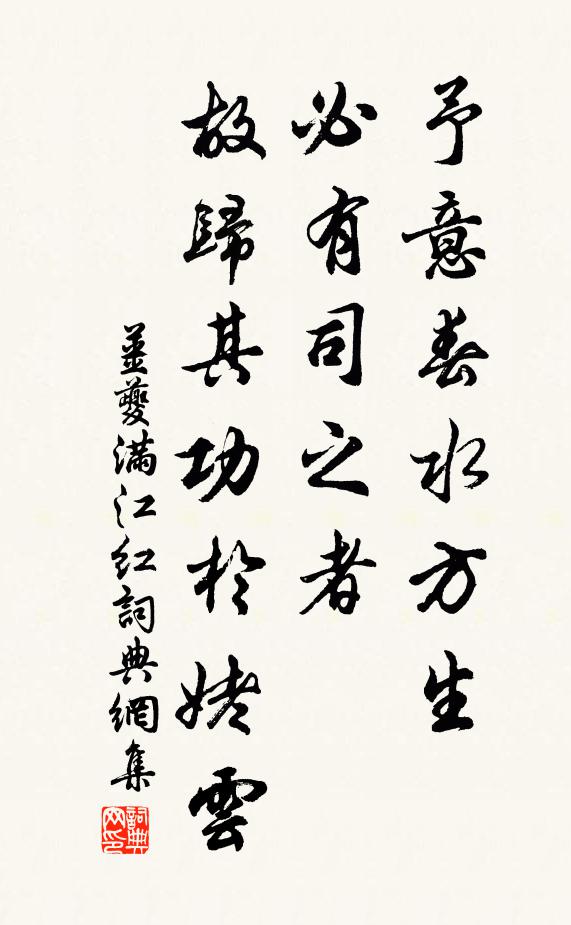 予意春水方生
必有司之者
故歸其功於姥雲
薑夔滿江紅詞典網集
詞典
网印